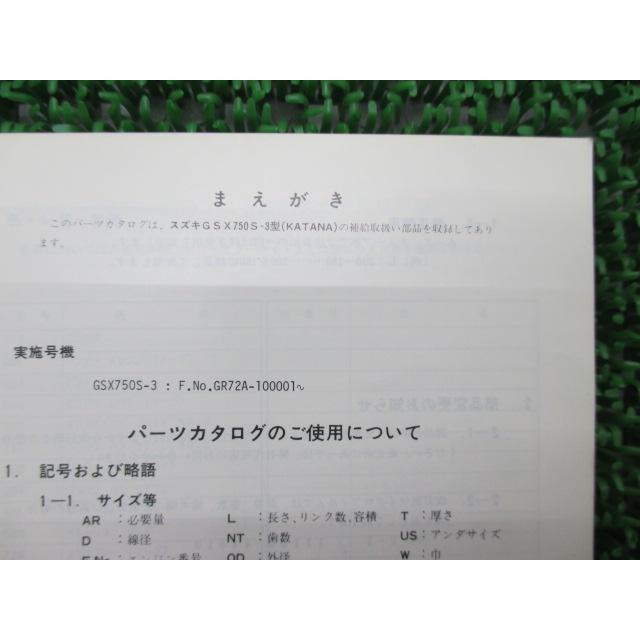 まえがき
このパーツカタログは、スズキGSX750S-3型(KATANA)の補給取扱い部品を収録してあり
ます。
実施号機
GSX750S-3 : F.No.GR72A-100001~
パーツカタログのご使用について
1. 記号および略語
1-1. サイズ等
AR : 必要量 L : 長さ, リンク数, 容積 T : 厚さ
D : 線径 NT : 歯数 US : アンダサイズ
E.No. : エンジン番号 OD : 外径 W : 巾